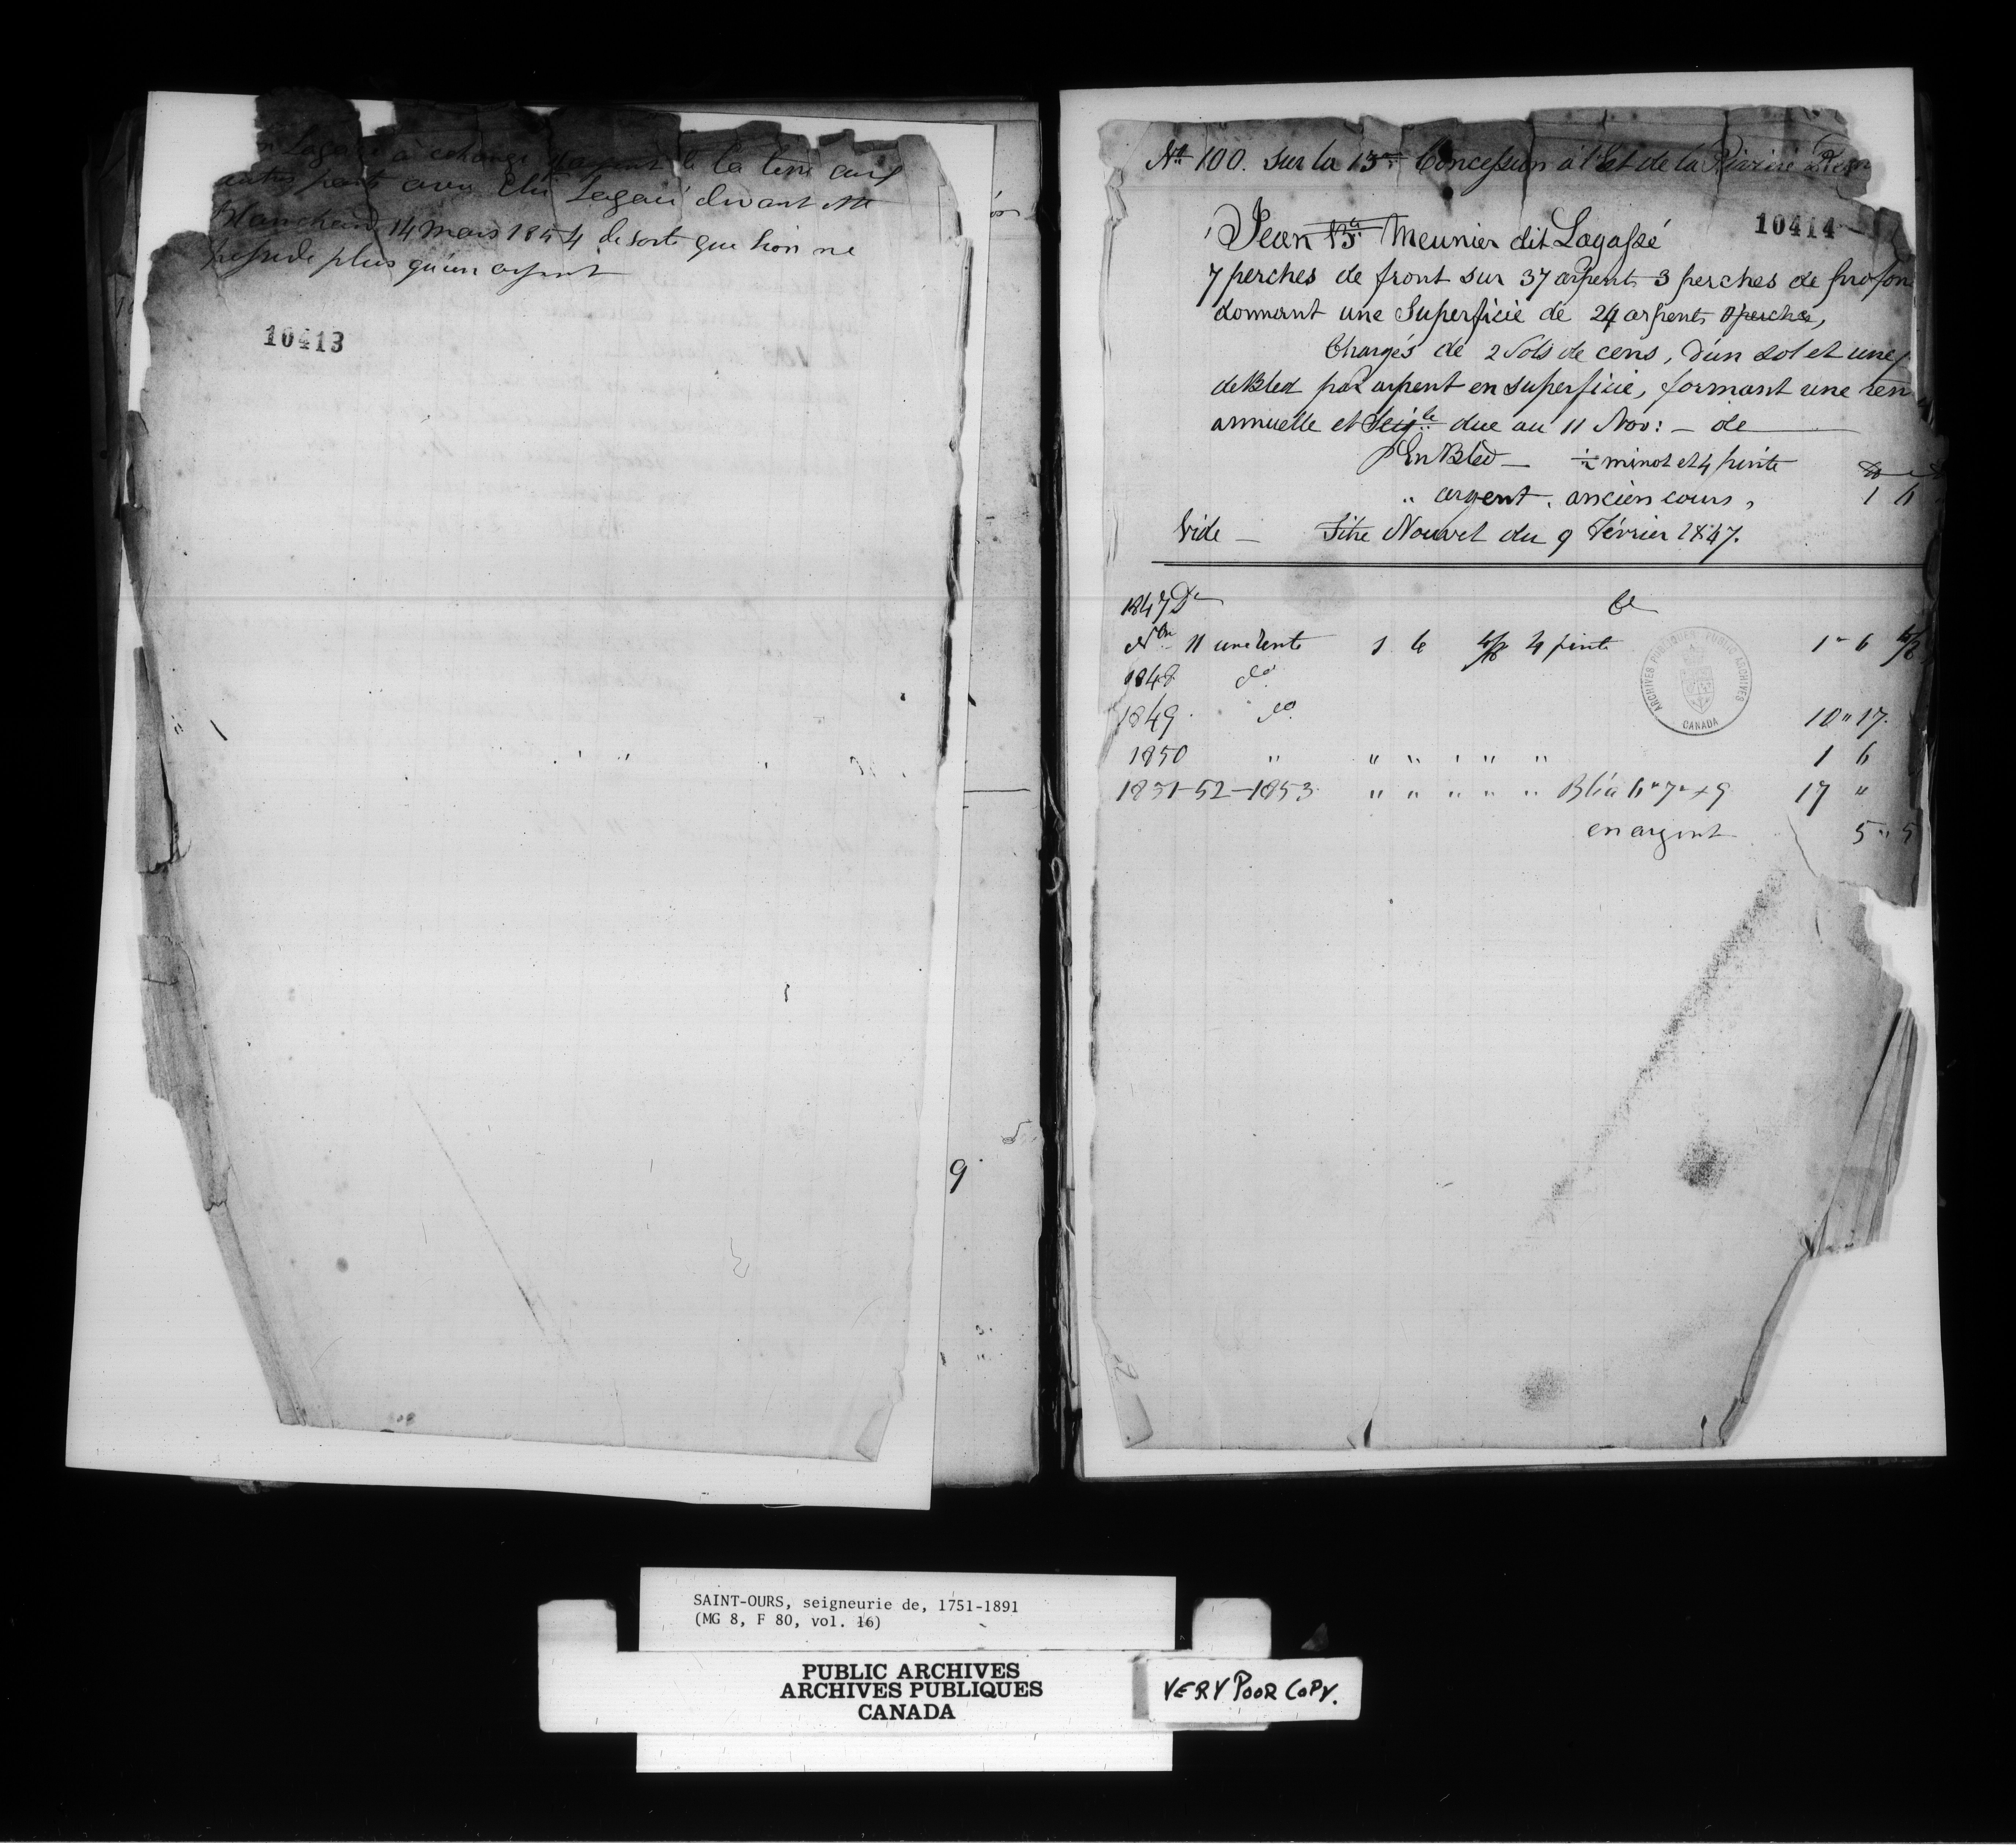 Lagacé a échangé arpent de la terre
autre part avec Lagacé devant Mtre
Blanchard 14 Mars 1854 de sorte que Léon ne
possede plus qu'un arpent
10413
9
No 100. Sur la 13e Concession à l'Est de la Rivière
10414
Jean Bte Meunier dit Lagassé
7 perches de front sur 37 arpents 3 perches de profon
donnant une Superficie de 24 arpents perches,
Chargés de 2 Sols de cens, d'un sol et une
de Bled par arpent en superficie, formant une ren
annuelle et Seigle due au 11 Nov: - de
En Bled - ½ minot et 4 pinte
" argent, ancien cours, 1 6
Vide - Titre Nouvel du 9 Février 1847.
1847 Dr Cr
Nbre 11 une rente 1 6 4 pinte 1 " 6
1848 do
1849 do 10 " 17
1850 " " " " " " 1 6
1851-52-1853 " " " " " 17 "
en argent 5 " 5
ARCHIVES PUBLIQUES PUBLIC ARCHIVES
CANADA
SAINT-OURS, seigneurie de, 1751-1891
(MG 8, F 80, vol. 16)
PUBLIC ARCHIVES
ARCHIVES PUBLIQUES
CANADA
VERY POOR COPY.